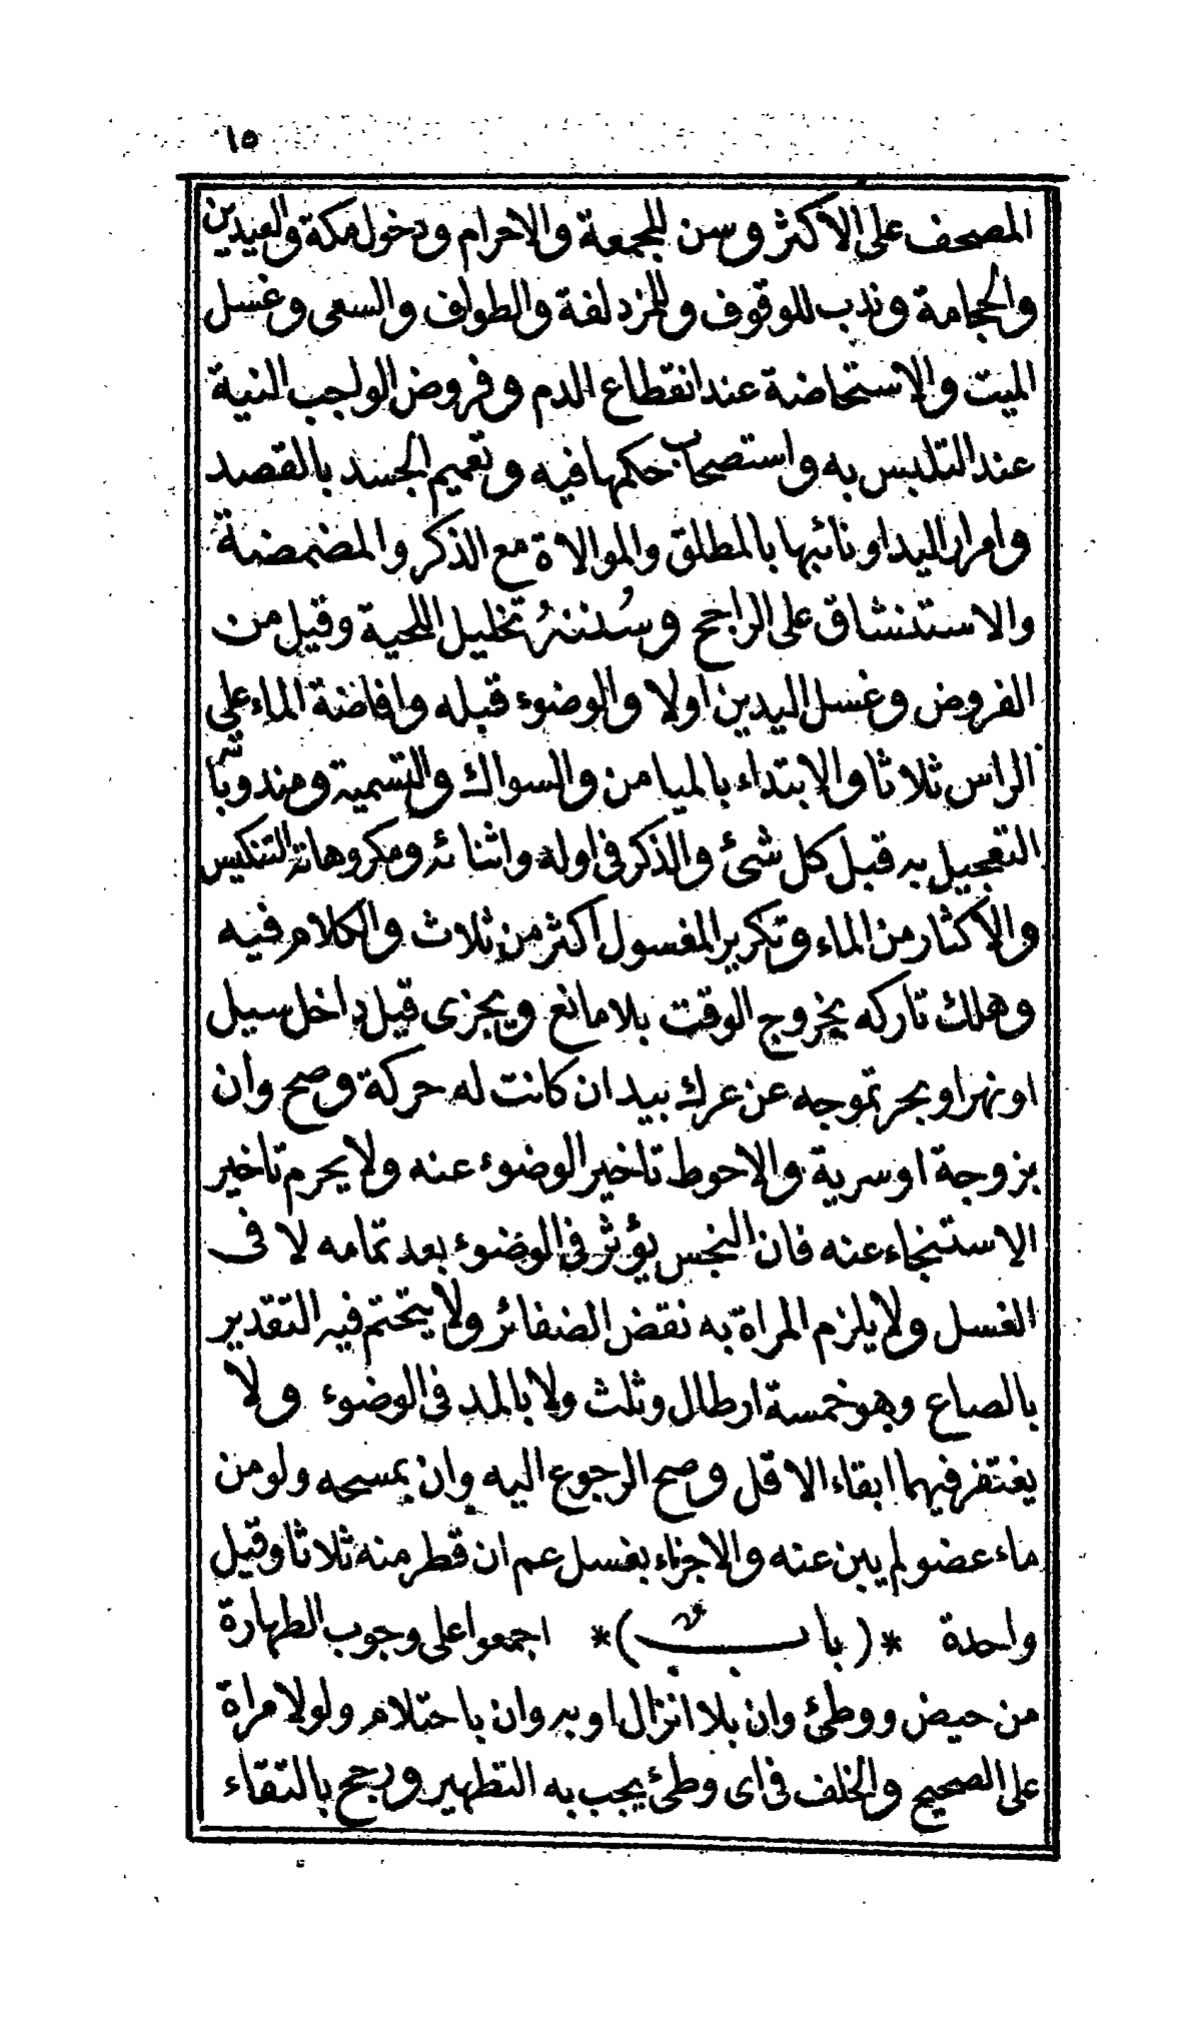 ١٥
المصحف على الاكثر وسن للجمعة والاحرام ودخول مكة والعيدين
والحجامة وندب للوقوف وللمزدلفة والطواف والسعى وغسل
الميت والاستحاضة عند انقطاع الدم وفروض الواجب النية
عند التلبس به واستصحاب حكمها فيه وتعميم الجسد بالقصد
وامرار اليد او نائبها بالمطلق والموالاة مع الذكر والمضمضة
والاستنشاق على الراجح وسُننهُ تخليل اللحية وقيل من
الفروض وغسل اليدين اولا والوضوء قبله وافاضة الماء على
الراس ثلاثا والابتداء بالميامن والسواك والتسمية ومندوباته
التعجيل به قبل كل شئ والذكر فى اوله واثنائه ومكروهاته التنكيس
والاكثار من الماء وتكرير المغسول اكثر من ثلاث والكلام فيه
وهلك تاركه بخروج الوقت بلا مانع ويجزى قيل داخل سيل
او نهر او بحر تموجه عن عرك بيد ان كانت له حركة وصح وان
بزوجة او سرية والاحوط تاخير الوضوء عنه ولا يحرم تاخير
الاستنجاء عنه فان النجس يؤثر فى الوضوء بعد تمامه لا فى
الغسل ولا يلزم المراة به نقض الضفائر ولا يتحتم فيه التقدير
بالصاع وهو خمسة ارطال وثلث ولا بالمد فى الوضوء ولا
يغتفر فيهما ابقاء الاقل وصح الرجوع اليه وان بمسحه ولو من
ماء عضو لم يبن عنه والاجزاء بغسل عم ان قطر منه ثلاثا وقيل
واحدة *(باب)* اجمعوا على وجوب الطهارة
من حيض ووطئ وان بلا انزال او به وان باحتلام ولو لامراة
على الصحيح والخلف فى اى وطئ يجب به التطهير ورجح بالتقاء